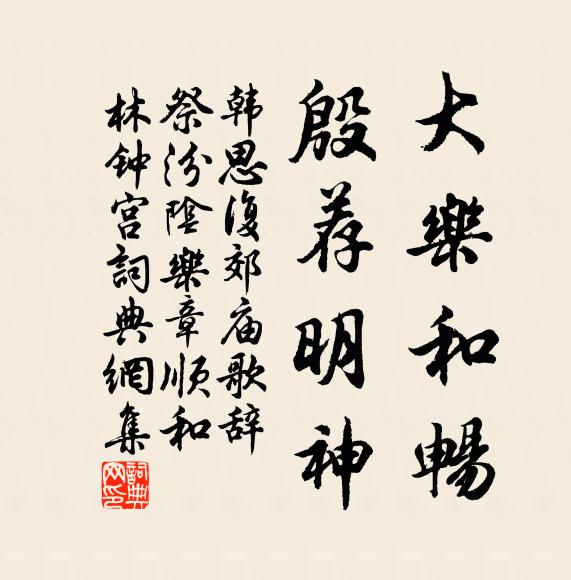 大樂和暢
殷荐明神
韩思復郊庙歌辞
祭汾陰樂章順和
林钟宮詞典網集
詞典
网印